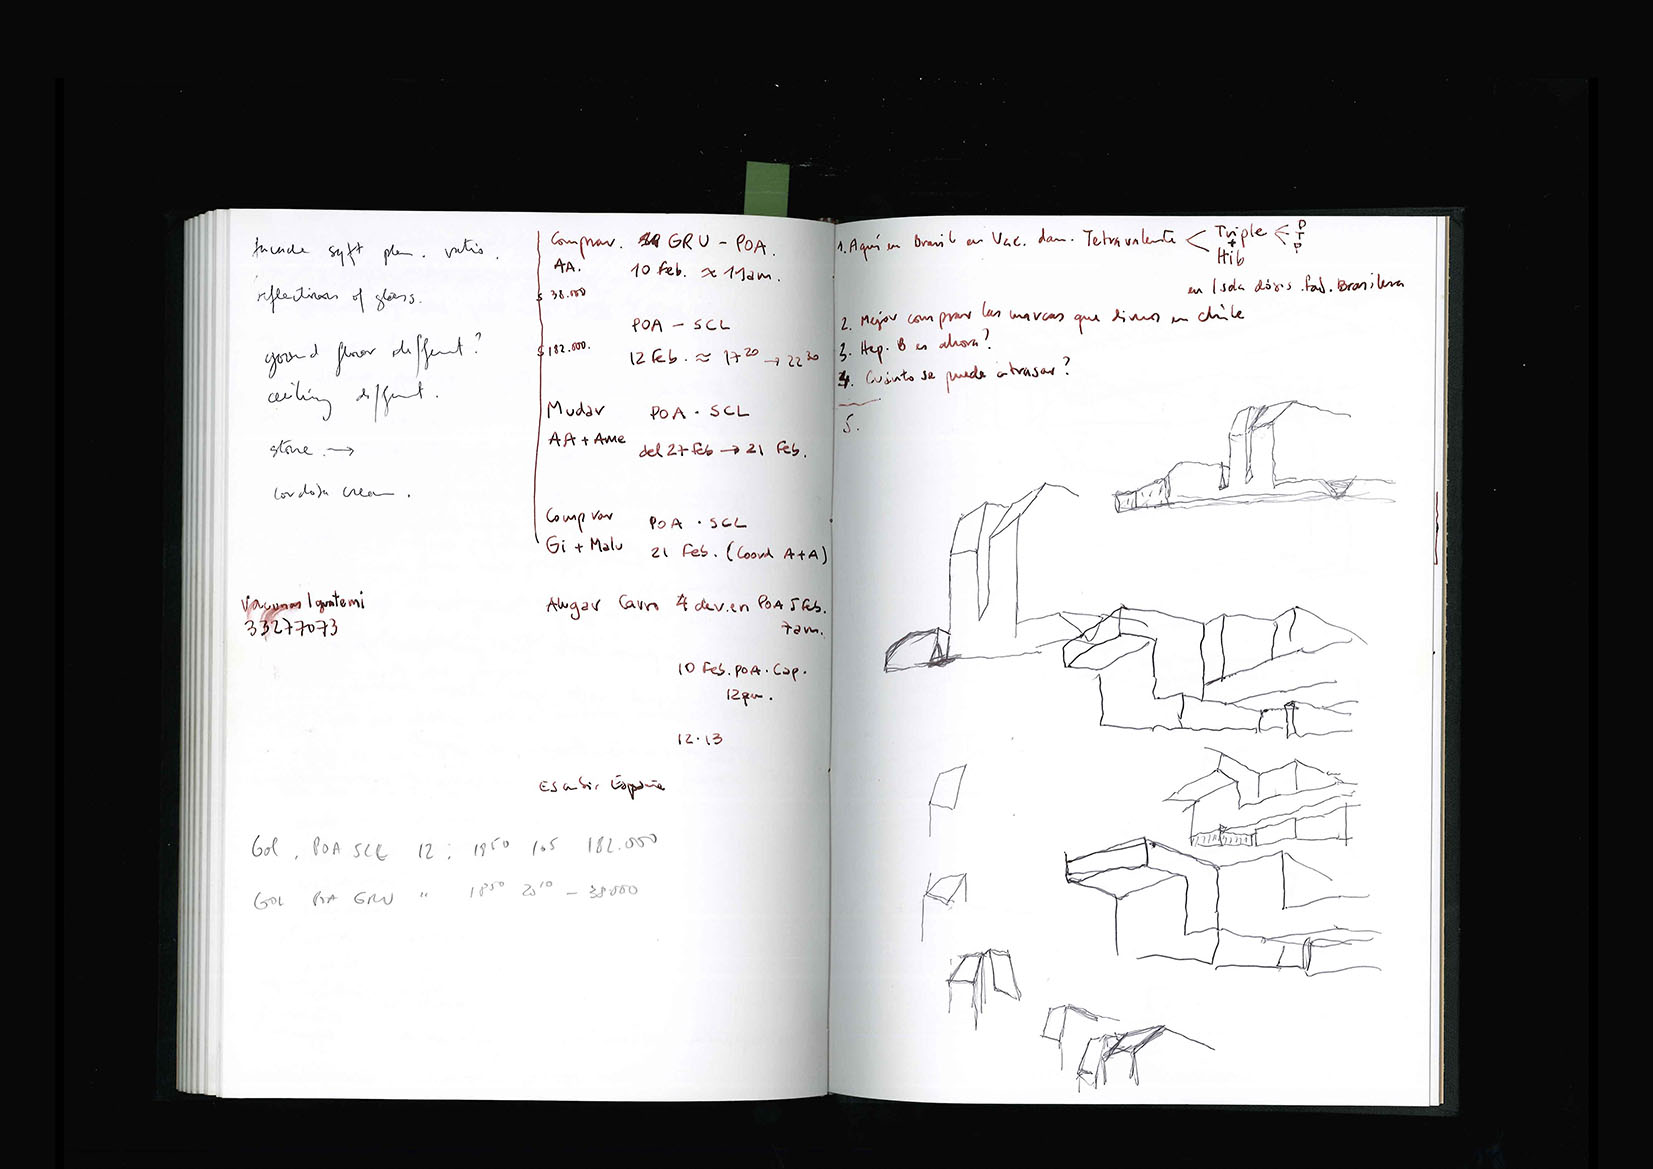 facade
reflections of glass.
ground floor different?
ceiling different.
stone →
cream.
Vacunas Iguatemi
33277073
Comprar. GRU - POA.
AA. 10 Feb. ≈ 11am.
$ 38.000
POA - SCL
$ 182.000. 12 Feb. ≈ 17 20 → 22 30
Mudar POA · SCL
AA + Ame del 27 Feb → 21 Feb.
Comprar POA · SCL
Gi + Malu 21 Feb. (Coord A+A)
Alugar Carro 4 dev. en POA 5 Feb.
7am.
10 Feb. POA. Cap.
12pm.
12·13
España
Gol. POA SCL 12: 1950 105 182.000
Gol POA GRU " 1850 2010 - 38000
1. Aquí en Brasil en Vac. dan. Tetravalente < Triple < P
+ T
Hib P
en 1 sola dosis. Brasilera
2. Mejor comprar las marcas que dimos en Chile
3. Hep. B es ahora?
4. Cuánto se puede atrasar?
5.